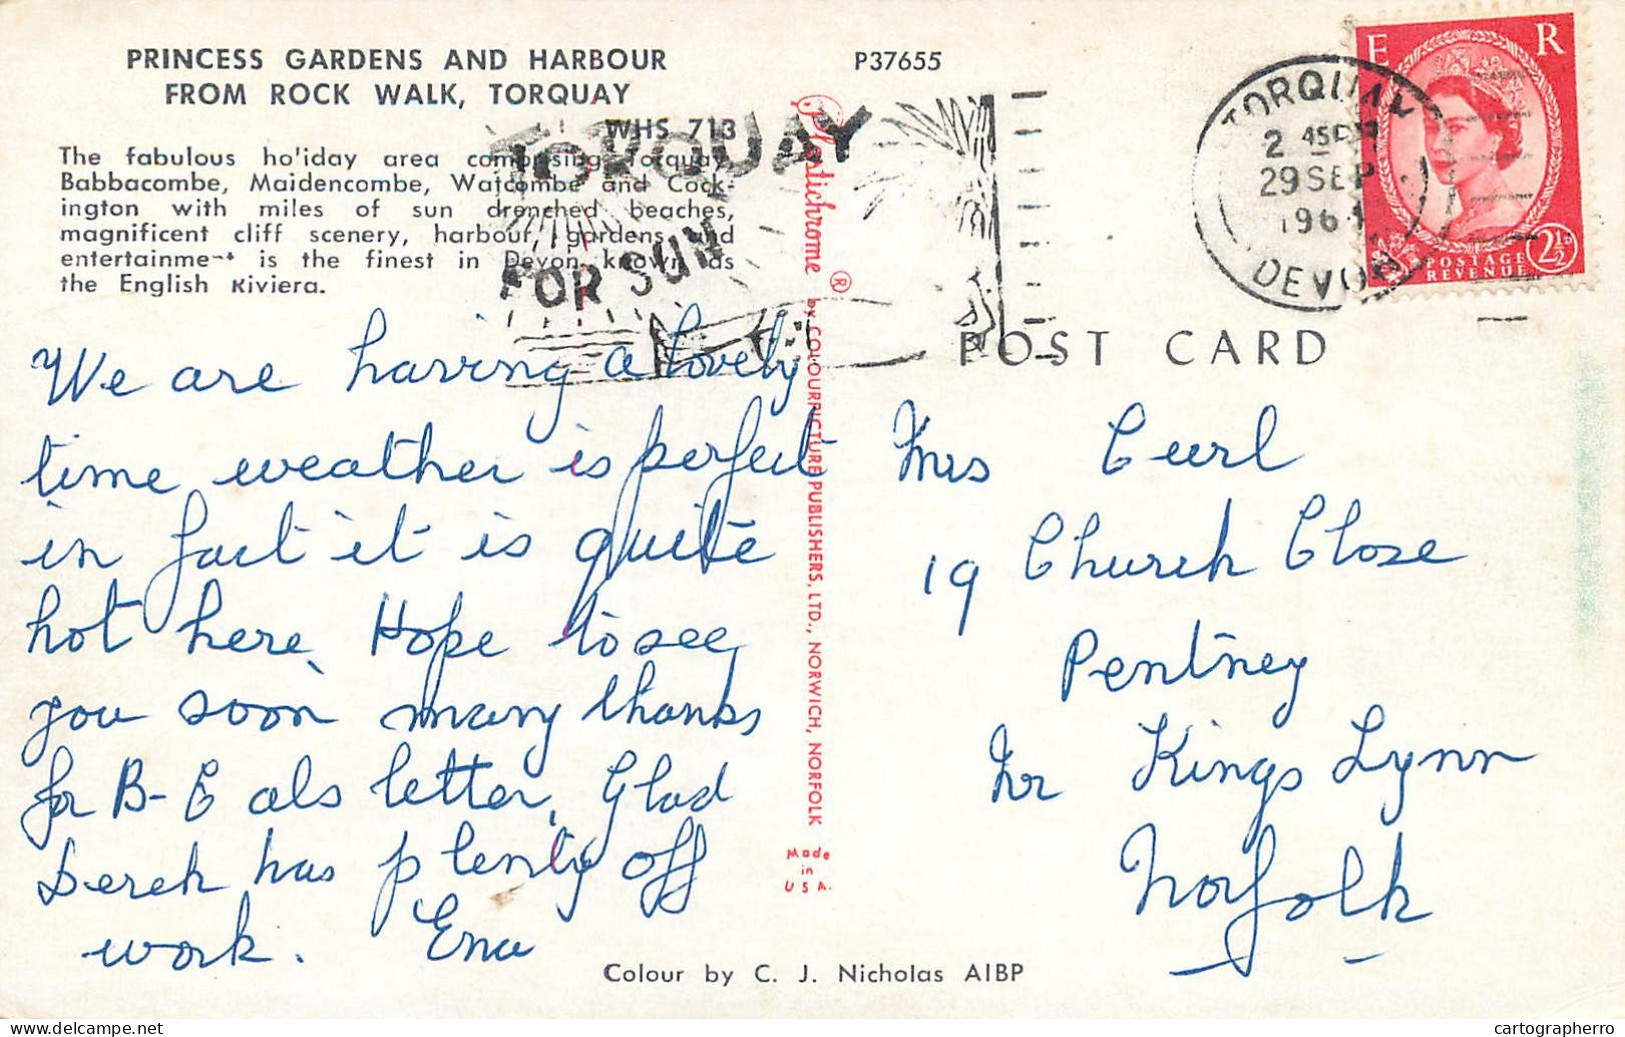 PRINCESS GARDENS AND HARBOUR
FROM ROCK WALK, TORQUAY
P37655
WHS 713
The fabulous ho'iday area comprising Torquay,
Babbacombe, Maidencombe, Watcombe and Cock-
ington with miles of sun drenched beaches,
magnificent cliff scenery, harbour, gardens and
entertainme-t is the finest in Devon known as
the English Riviera.
TORQUAY
FOR SUN
TORQUAY
2 45 PM
29 SEP
DEVON
E R
2½D
POSTAGE
REVENUE
POST CARD
We are having a lovely
time weather is perfect
in fact it is quite
hot here. Hope to see
you soon many thanks
for B-E als letter. Glad
Derek has plenty off
work. Ena
Plastichrome ® by COLOURPICTURE PUBLISHERS, LTD., NORWICH, NORFOLK
Made
in
U S A.
Mrs
19 Church Close
Pentney
Nr Kings Lynn
Norfolk
Colour by C. J. Nicholas AIBP
cartographerro